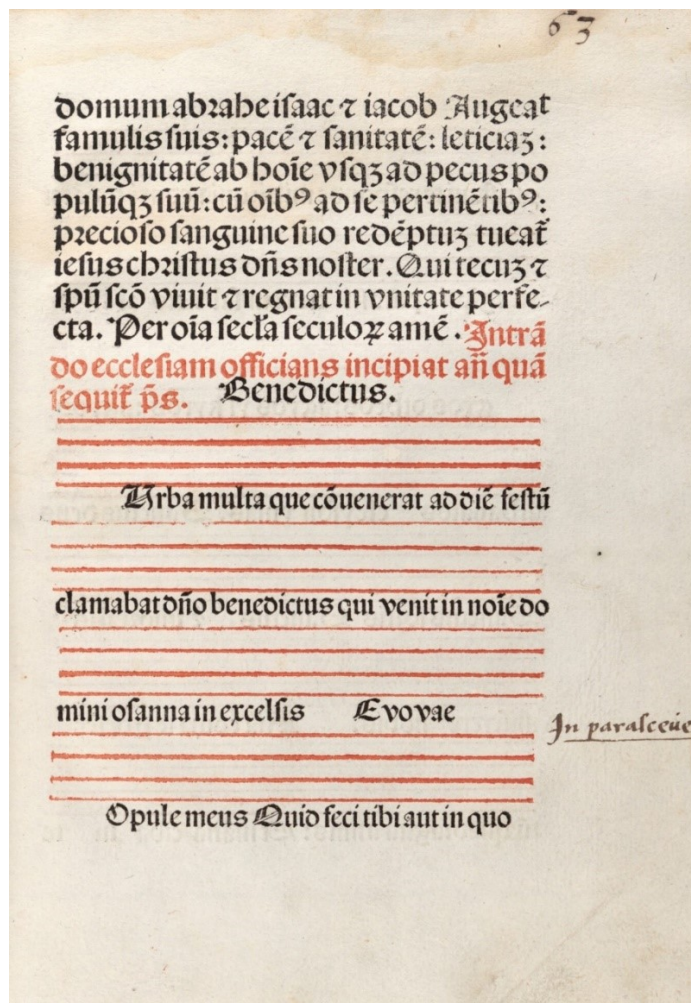 63
domum abrahe isaac ⁊ iacob Augeat
famulis suis: pacē ⁊ sanitatē: leticiaꝫ:
benignitatē ab hoīe vsqꝫ ad pecus po
pulūqꝫ suū: cū oībꝰ ad se pertinētibꝰ:
precioso sanguine suo redēptuꝫ tueat᷑
iesus christus dn̄s noster. Qui tecuꝫ ⁊
spū scō viuit ⁊ regnat in vnitate perfe-
cta. Per oīa secl̄a seculoꝝ amē. Intrā
do ecclesiam officians incipiat an̄ quā
sequit᷑ p̄s. Benedictus.
Urba multa que cōuenerat ad diē festū
clamabat dn̄o benedictus qui venit in noīe do
mini osanna in excelsis Evovae
In parasceue
Opule meus Quid feci tibi aut in quo